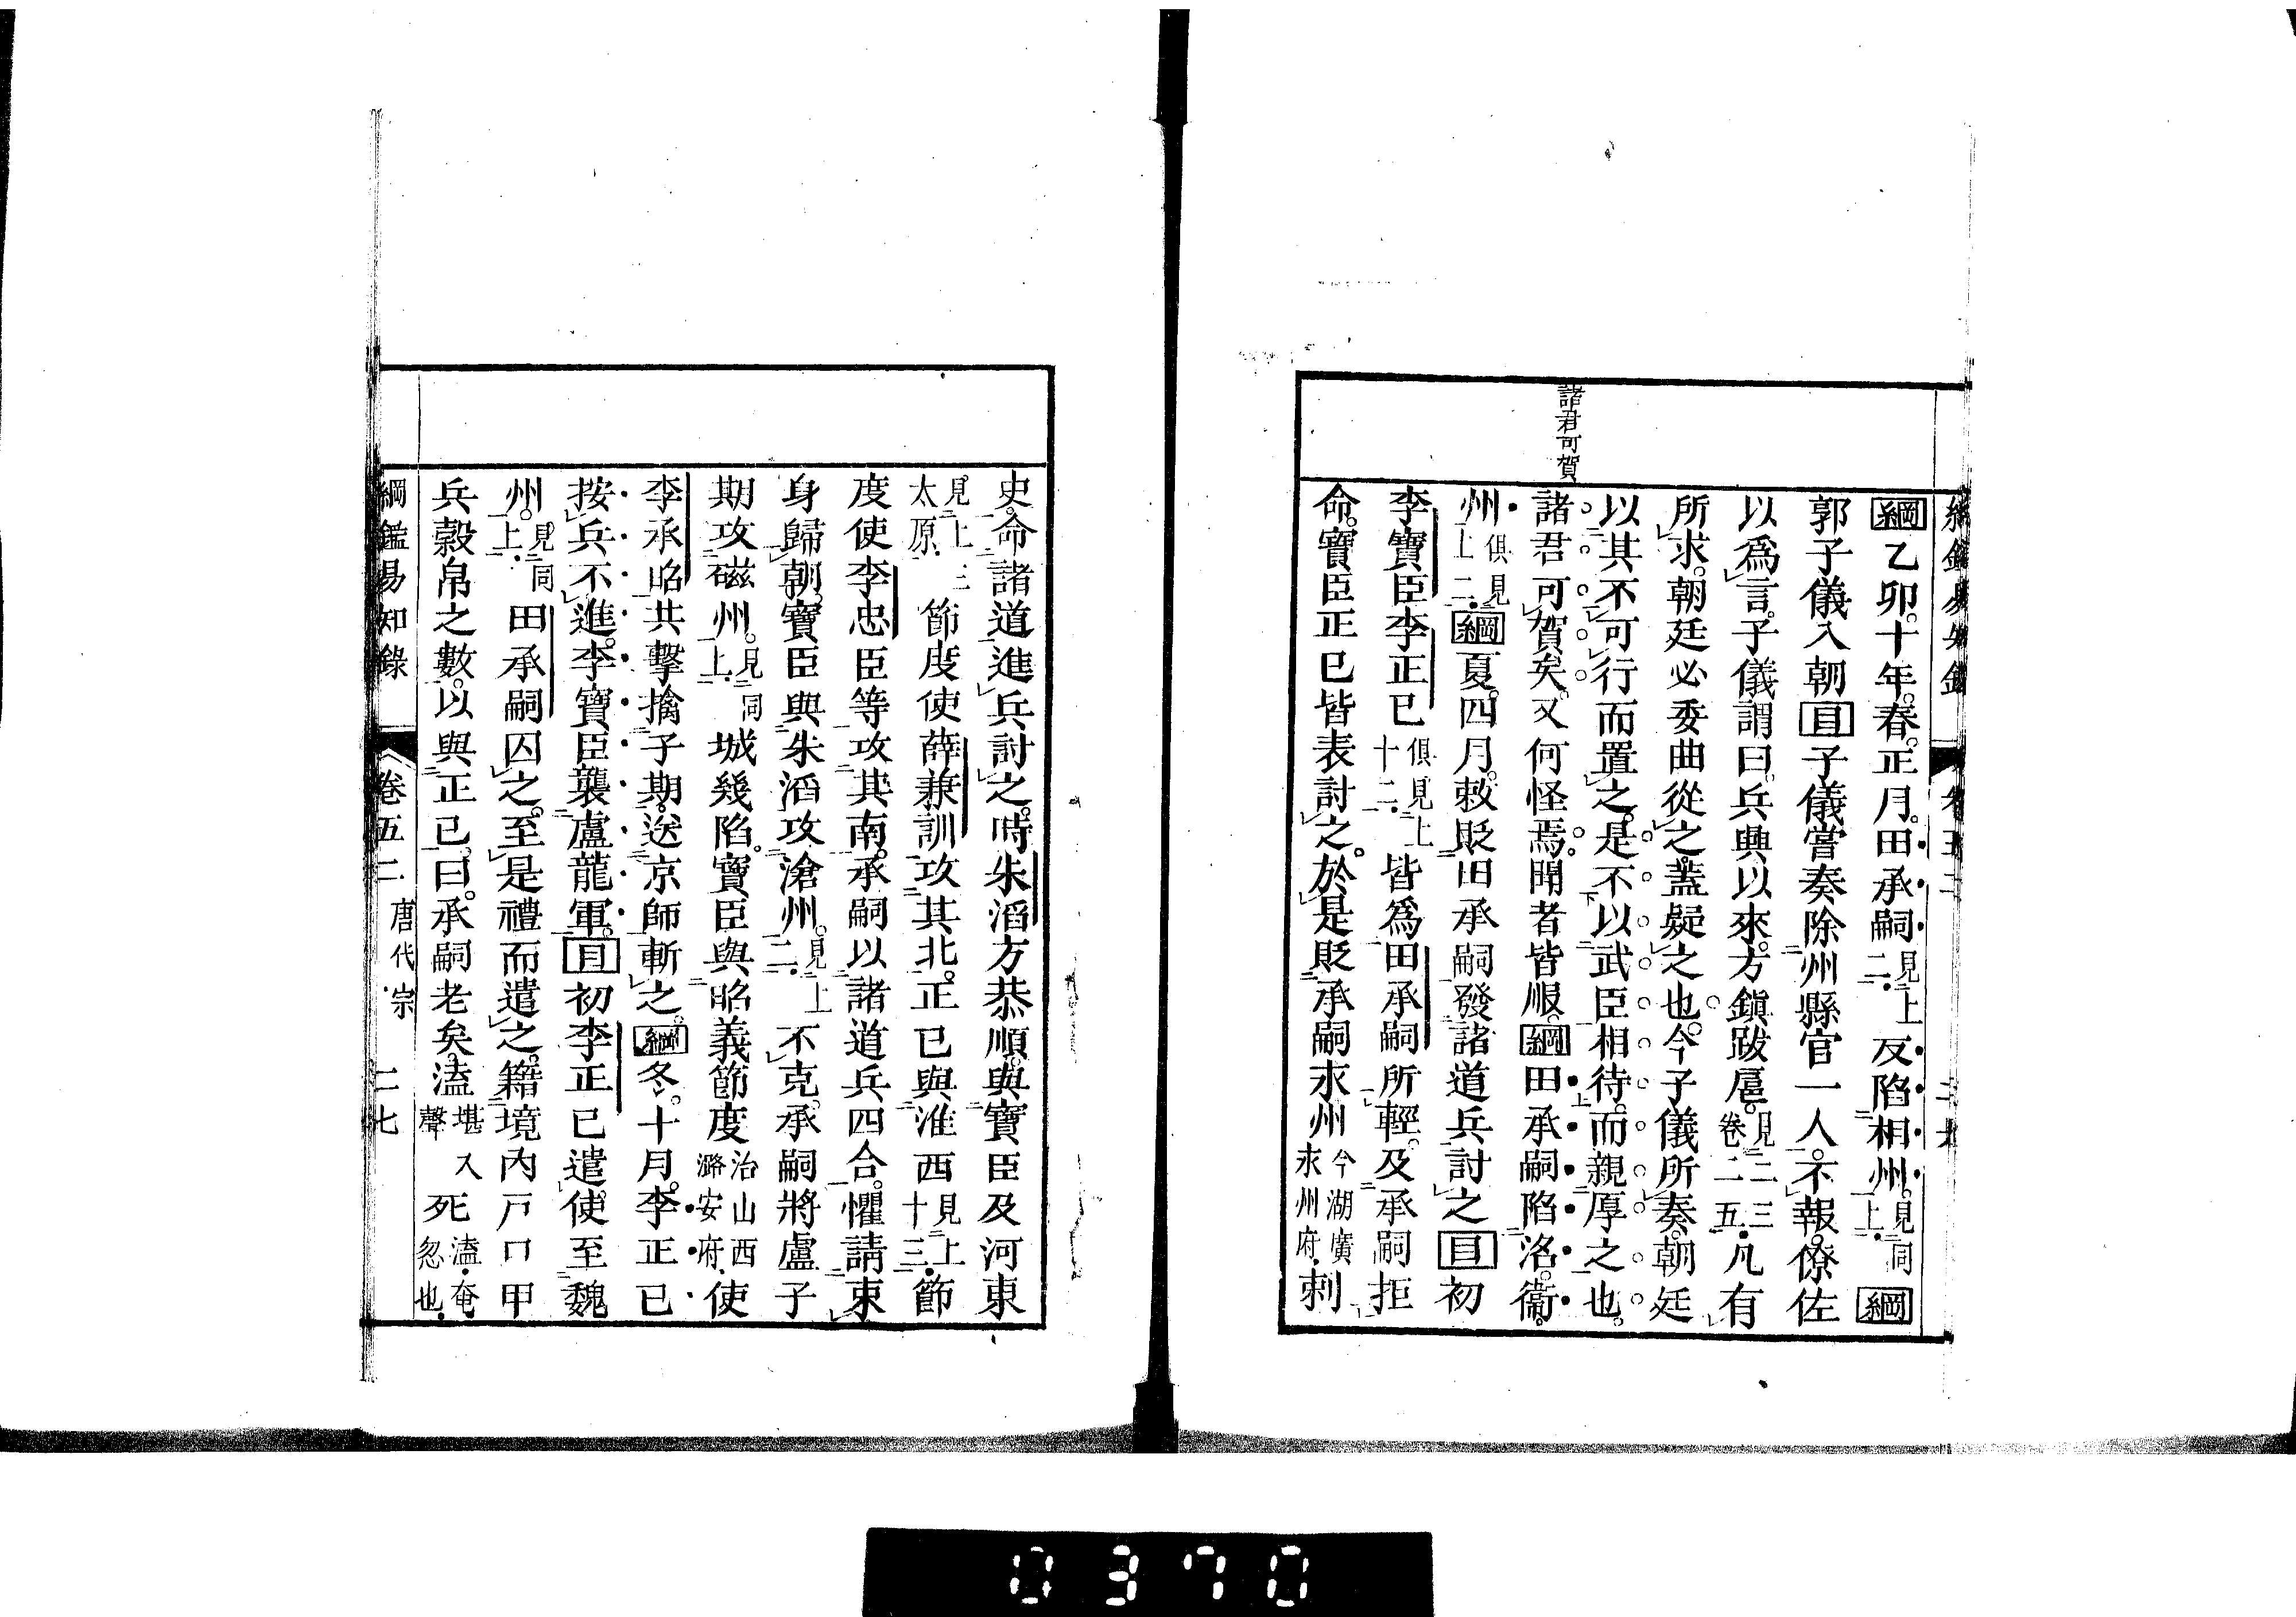 諸君可賀
綱乙卯。十年。春。正月。田承嗣見上二。反陷相州。見同上。綱
郭子儀入朝目子儀嘗奏除州縣官一人。不報。僚佐
以爲言。子儀謂曰。兵興以來。方鎭跋扈。見二三卷二五。凡有
所求。朝廷必委曲從之。蓋疑之也。今子儀所奏。朝廷
以其不可行而置之。是不以武臣相待。而親厚之也。
諸君可賀矣。又何怪焉。聞者皆服。綱田承嗣陷洛。衞。
州俱見上二。綱夏。四月。敕貶田承嗣發諸道兵討之目初
李寶臣李正已俱見上十二。皆爲田承嗣所輕。及承嗣拒
命。寶臣正已皆表討之。於是貶承嗣永州今湖廣永州府。刺
史。命諸道進兵討之。時朱滔方恭順。與寶臣及河東
見上三太原。節度使薛兼訓攻其北。正已與淮西見上十三。節
度使李忠臣等攻其南。承嗣以諸道兵四合。懼請束
身歸朝。寶臣與朱滔攻滄州。見上二。不克。承嗣將盧子
期攻磁州。見同上。城幾陷。寶臣與昭義節度治山西潞安府。使
李承昭共擊擒子期。送京師斬之。綱冬。十月。李正已
按兵不進。李寶臣襲盧龍軍。目初李正已遣使至魏
州。見同上。田承嗣囚之。至是禮而遣之。籍境內戸口甲
兵穀帛之數。以與正已。曰。承嗣老矣。溘堪入聲死溘。奄忽也。
綱鑑易知錄 卷五二 唐代宗 二七